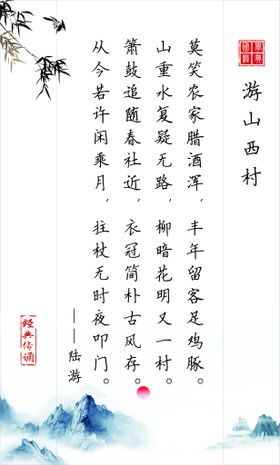 游山西村
莫笑农家腊酒浑，丰年留客足鸡豚。
山重水复疑无路，柳暗花明又一村。
箫鼓追随春社近，衣冠简朴古风存。
从今若许闲乘月，拄杖无时夜叩门。
——陆游
经典传诵